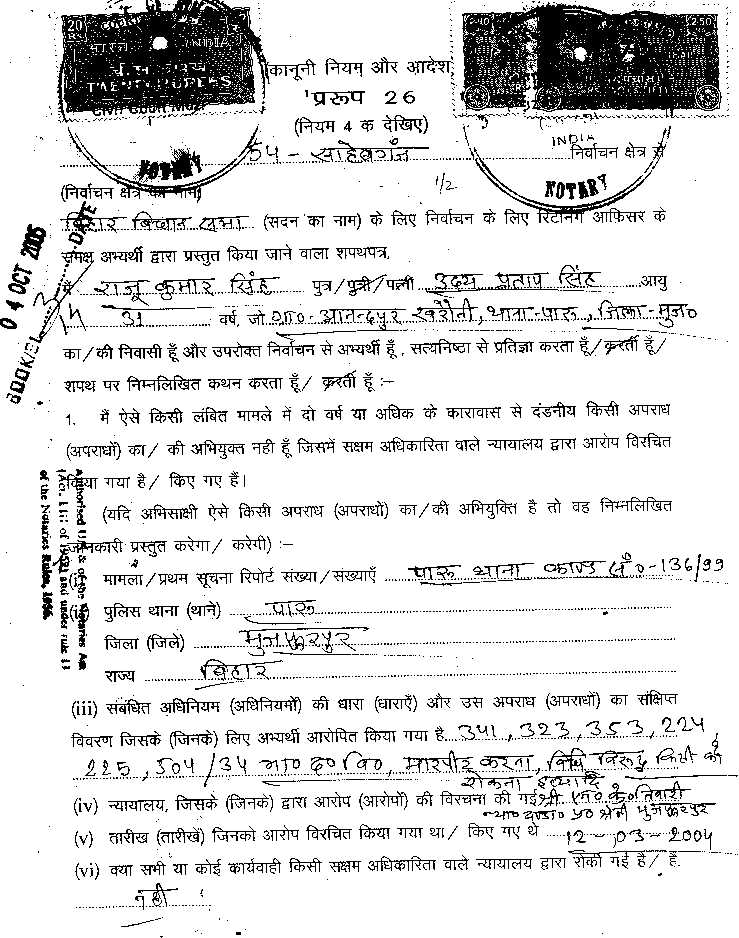 20
भारत INDIA
TWENTY RUPEES
40
250
कानूनी नियम और आदेश
प्ररूप 26
(नियम 4 क देखिए)
INDIA
54 - साहेबगंज निर्वाचन क्षेत्र से
NOTARY
NOTARY
1/2
(निर्वाचन क्षेत्र का नाम)
बिहार विधान सभा (सदन का नाम) के लिए निर्वाचन के लिए रिटर्निंग आफिसर के
समक्ष अभ्यर्थी द्वारा प्रस्तुत किया जाने वाला शपथपत्र,
मैं राजू कुमार सिंह पुत्र/पुत्री/पत्नी उदय प्रताप सिंह आयु
31 वर्ष, जो ग्रा०-आनन्दपुर खरौनी, थाना-पारू, जिला-मुज०
का/की निवासी हूँ और उपरोक्त निर्वाचन से अभ्यर्थी हूँ, सत्यनिष्ठा से प्रतिज्ञा करता हूँ/करती हूँ/
शपथ पर निम्नलिखित कथन करता हूँ/ करती हूँ :–
04 OCT 2005
DATE
1. मैं ऐसे किसी लंबित मामले में दो वर्ष या अधिक के कारावास से दंडनीय किसी अपराध
(अपराधों) का/ की अभियुक्त नही हूँ जिसमें सक्षम अधिकारिता वाले न्यायालय द्वारा आरोप विरचित
किया गया है/ किए गए हैं।
(यदि अभिसाक्षी ऐसे किसी अपराध (अपराधों) का/की अभियुक्ति है तो वह निम्नलिखित
जानकारी प्रस्तुत करेगा/ करेगी) :–
Authorised U/S & of the Notaries Act
(Act. Liii of 1952) and under rule 11
of the Notaries Rules, 1956.
(i) मामला/प्रथम सूचना रिपोर्ट संख्या/संख्याएँ पारू थाना काण्ड सं०-136/99
(ii) पुलिस थाना (थाने) पारू
जिला (जिले) मुजफ्फरपुर
राज्य बिहार
(iii) संबंधित अधिनियम (अधिनियमों) की धारा (धाराएँ) और उस अपराध (अपराधों) का संक्षिप्त
विवरण जिसके (जिनके) लिए अभ्यर्थी आरोपित किया गया है 341, 323, 353, 224,
225, 504/34 भा० द० वि०, मारपीट करना, विधि विरूद्ध किसी को
रोकना इत्यादि
(iv) न्यायालय, जिसके (जिनके) द्वारा आरोप (आरोपों) की विरचना की गई श्री एन० के० तिवारी
न्या० दण्डा० प्र० श्रेणी मुजफ्फरपुर
(v) तारीख (तारीखें) जिनको आरोप विरचित किया गया था/ किए गए थे 12-03-2004
(vi) क्या सभी या कोई कार्यवाही किसी सक्षम अधिकारिता वाले न्यायालय द्वारा रोकी गई है/ हैं.
नहीं